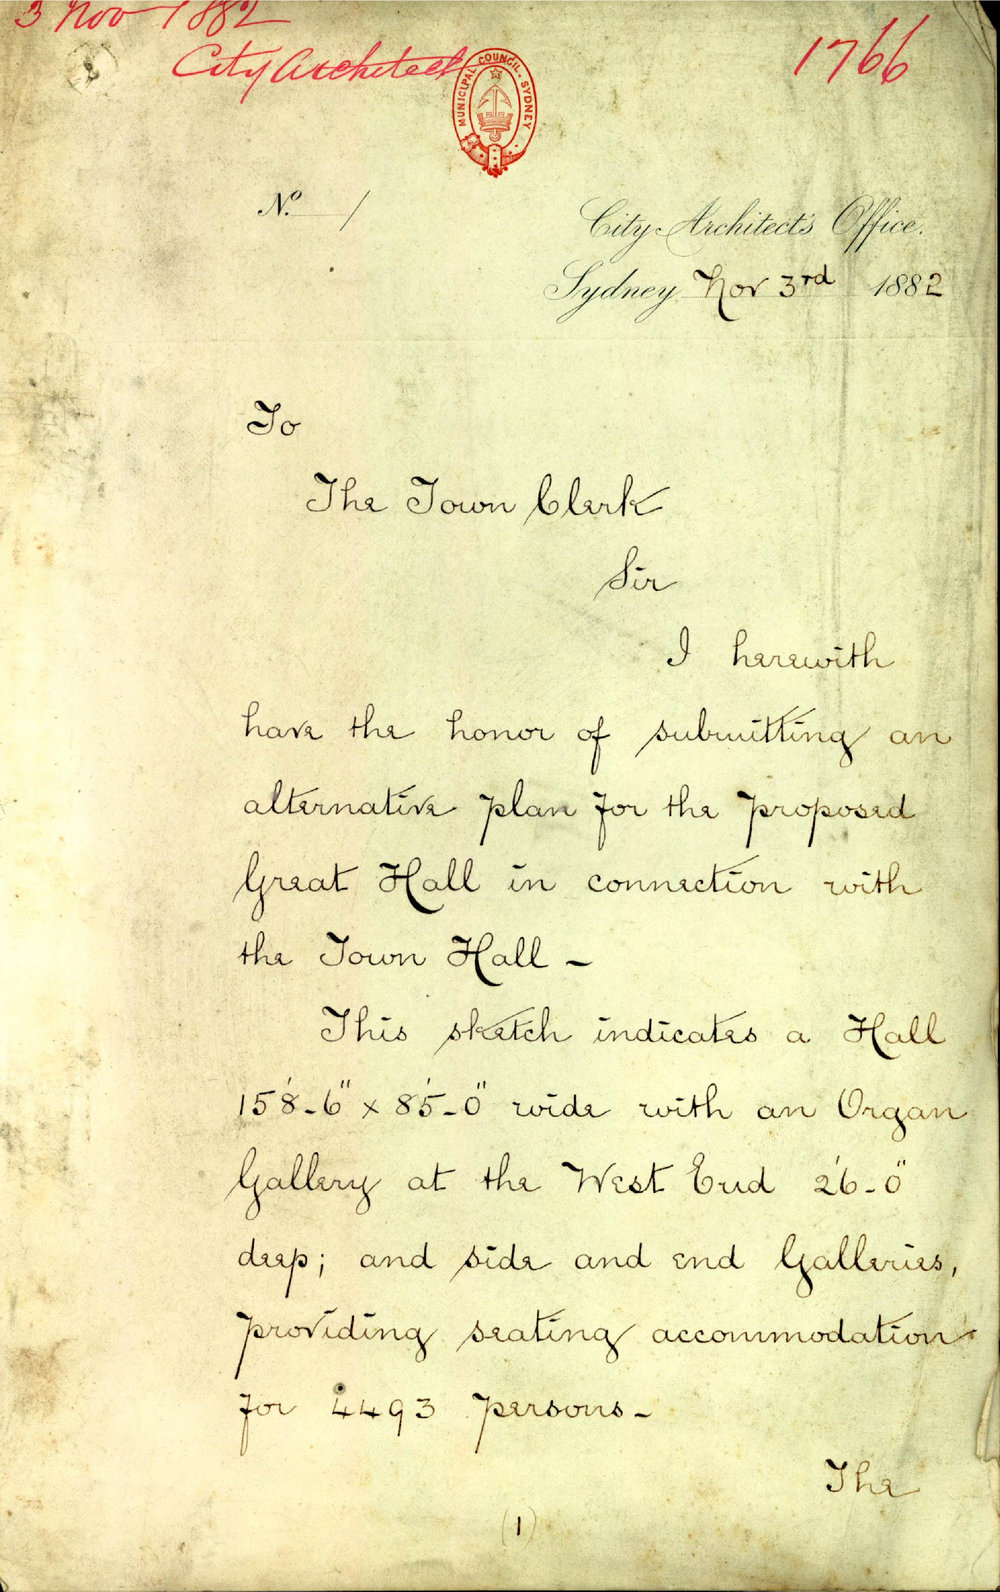 3 Nov 1882
City Architect
1766
MUNICIPAL COUNCIL. SYDNEY
No. 1
City Architect's Office.
Sydney Nov 3rd 1882
To
The Town Clerk
Sir
I herewith
have the honor of submitting an
alternative plan for the proposed
Great Hall in connection with
the Town Hall –
This sketch indicates a Hall
158'-6" x 85'-0" wide with an Organ
Gallery at the West End 26'-0"
deep; and side and end Galleries,
providing seating accommodation
for 4493 persons –
The
(1)